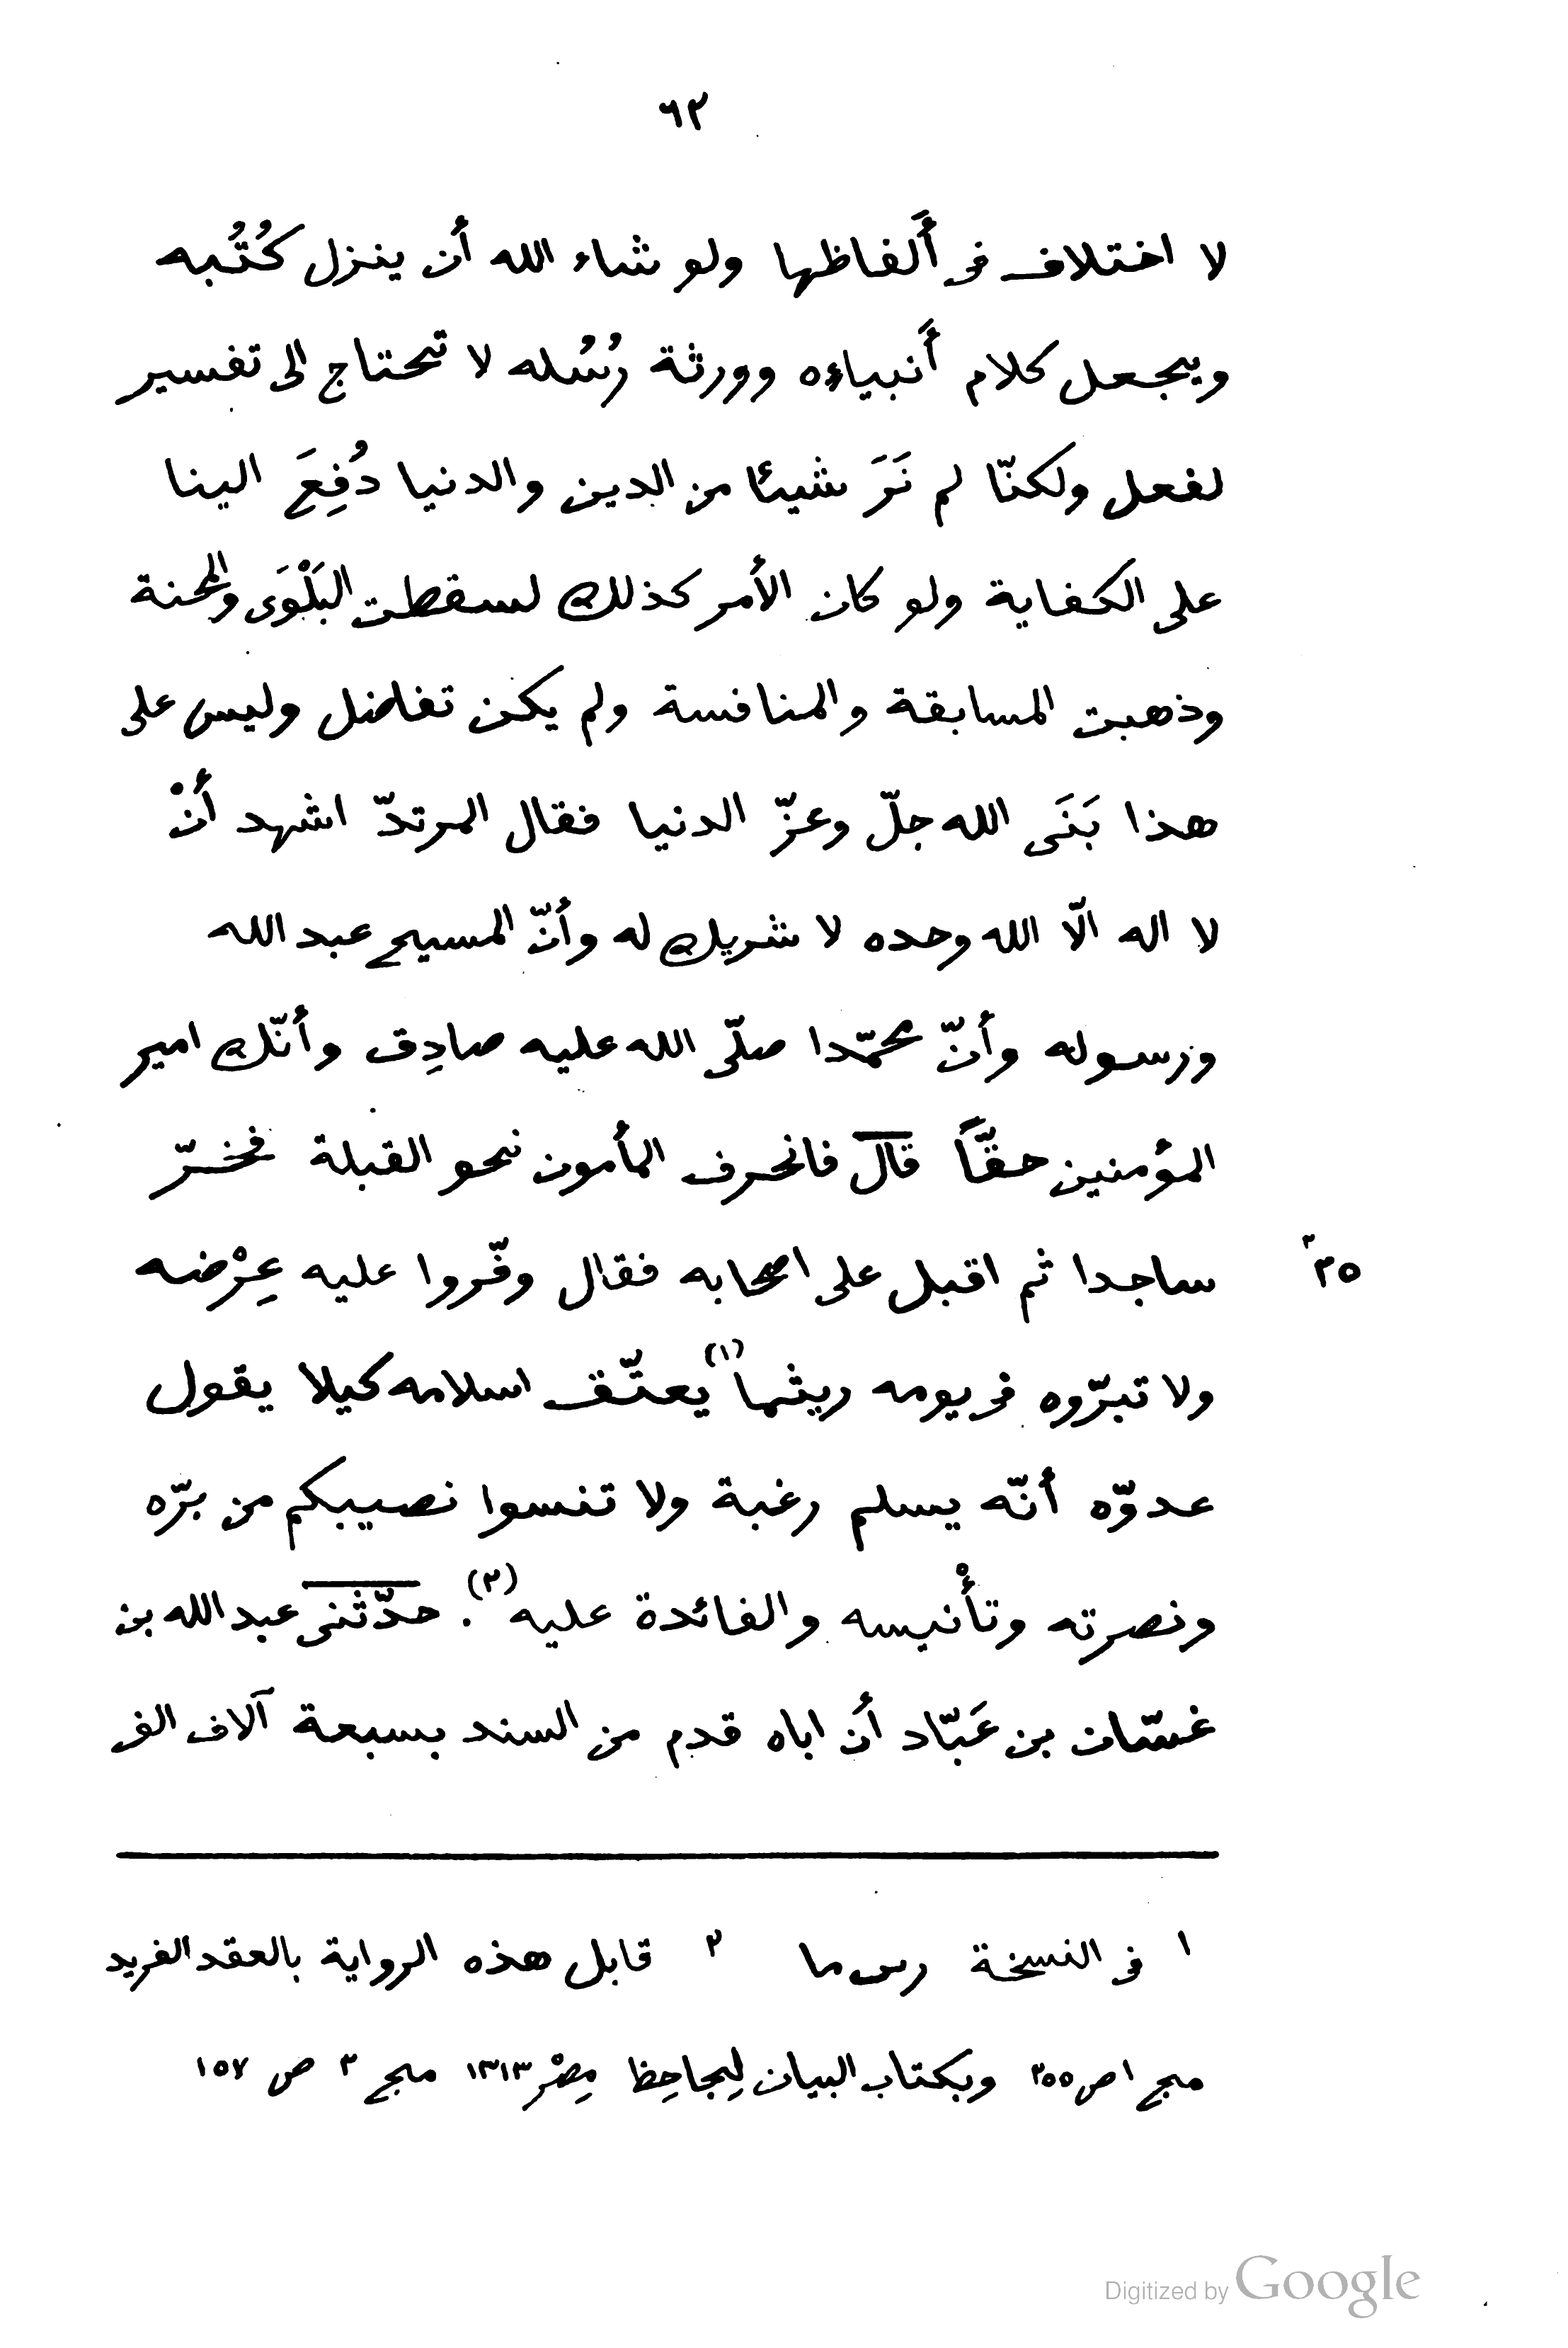 ٦٢
لا اختلاف فى أَلفاظها ولو شاء الله أن ينزل كُتُبه
ويجعل كلام أَنبياءه وورثة رُسُله لا تحتاج الى تفسير
لفعل ولكنّا لم نَرَ شيئا من الدين والدنيا دُفِعَ الينا
على الكفاية ولو كان الأمر كذلك لسقطت البَلْوَى والمحنة
وذهبت المسابقة والمنافسة ولم يكن تفاضل وليس على
هذا بَنَى الله جلّ وعزّ الدنيا فقال المرتدّ اشهد أنْ
لا اله الّا الله وحده لا شريك له وأنّ المسيح عبد الله
ورسوله وأنّ محمّدا صلّى الله عليه صادِق وأنّك امير
المؤمنين حقّاً قال فانحرف المأمون نحو القبلة فخرّ
ساجدا ثم اقبل على اصحابه فقال وفّروا عليه عِرْضه
ولا تبرّوه فى يومه ريثما (١) يعتّق اسلامه كيلا يقول
عدوّه أنّه يسلم رغبة ولا تنسوا نصيبكم من برّه
ونصرته وتأْنيسه والفائدة عليه (٢). حدّثنى عبد الله بن
غسّان بن عَبّاد أن اباه قدم من السند بسبعة آلاف الف
١ فى النسخة رىىما ٢ قابل هذه الرواية بالعقد الفريد
مجع ١ ص ٣٥٥ وبكتاب البيان لِجاحِظ مِصْر ١٣١٣ مجع ٢ ص ١٥٧
Digitized by Google